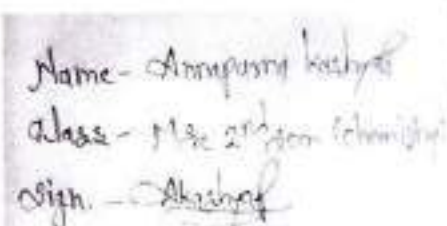 Name - Annapurna Kashyap
Class - Msc 2nd sem (chemistry
Sign. - AKashyap